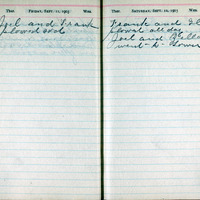 Ther. Friday, Sept. 11, 1903 Wea.
Joel and Frank
plowed sod
Ther. Saturday, Sept. 12, 1903 Wea.
Frank and
plowed all day
Joel and
went to